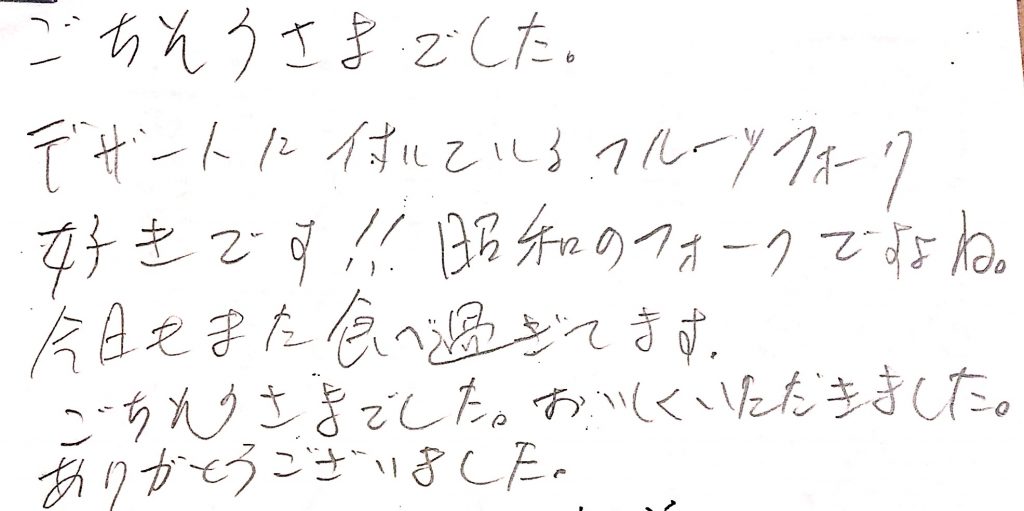 ごちそうさまでした。
デザートに付いているフルーツフォーク
好きです!! 昭和のフォークですよね。
今日もまた食べ過ぎてます.
ごちそうさまでした。おいしくいただきました。
ありがとうございました。